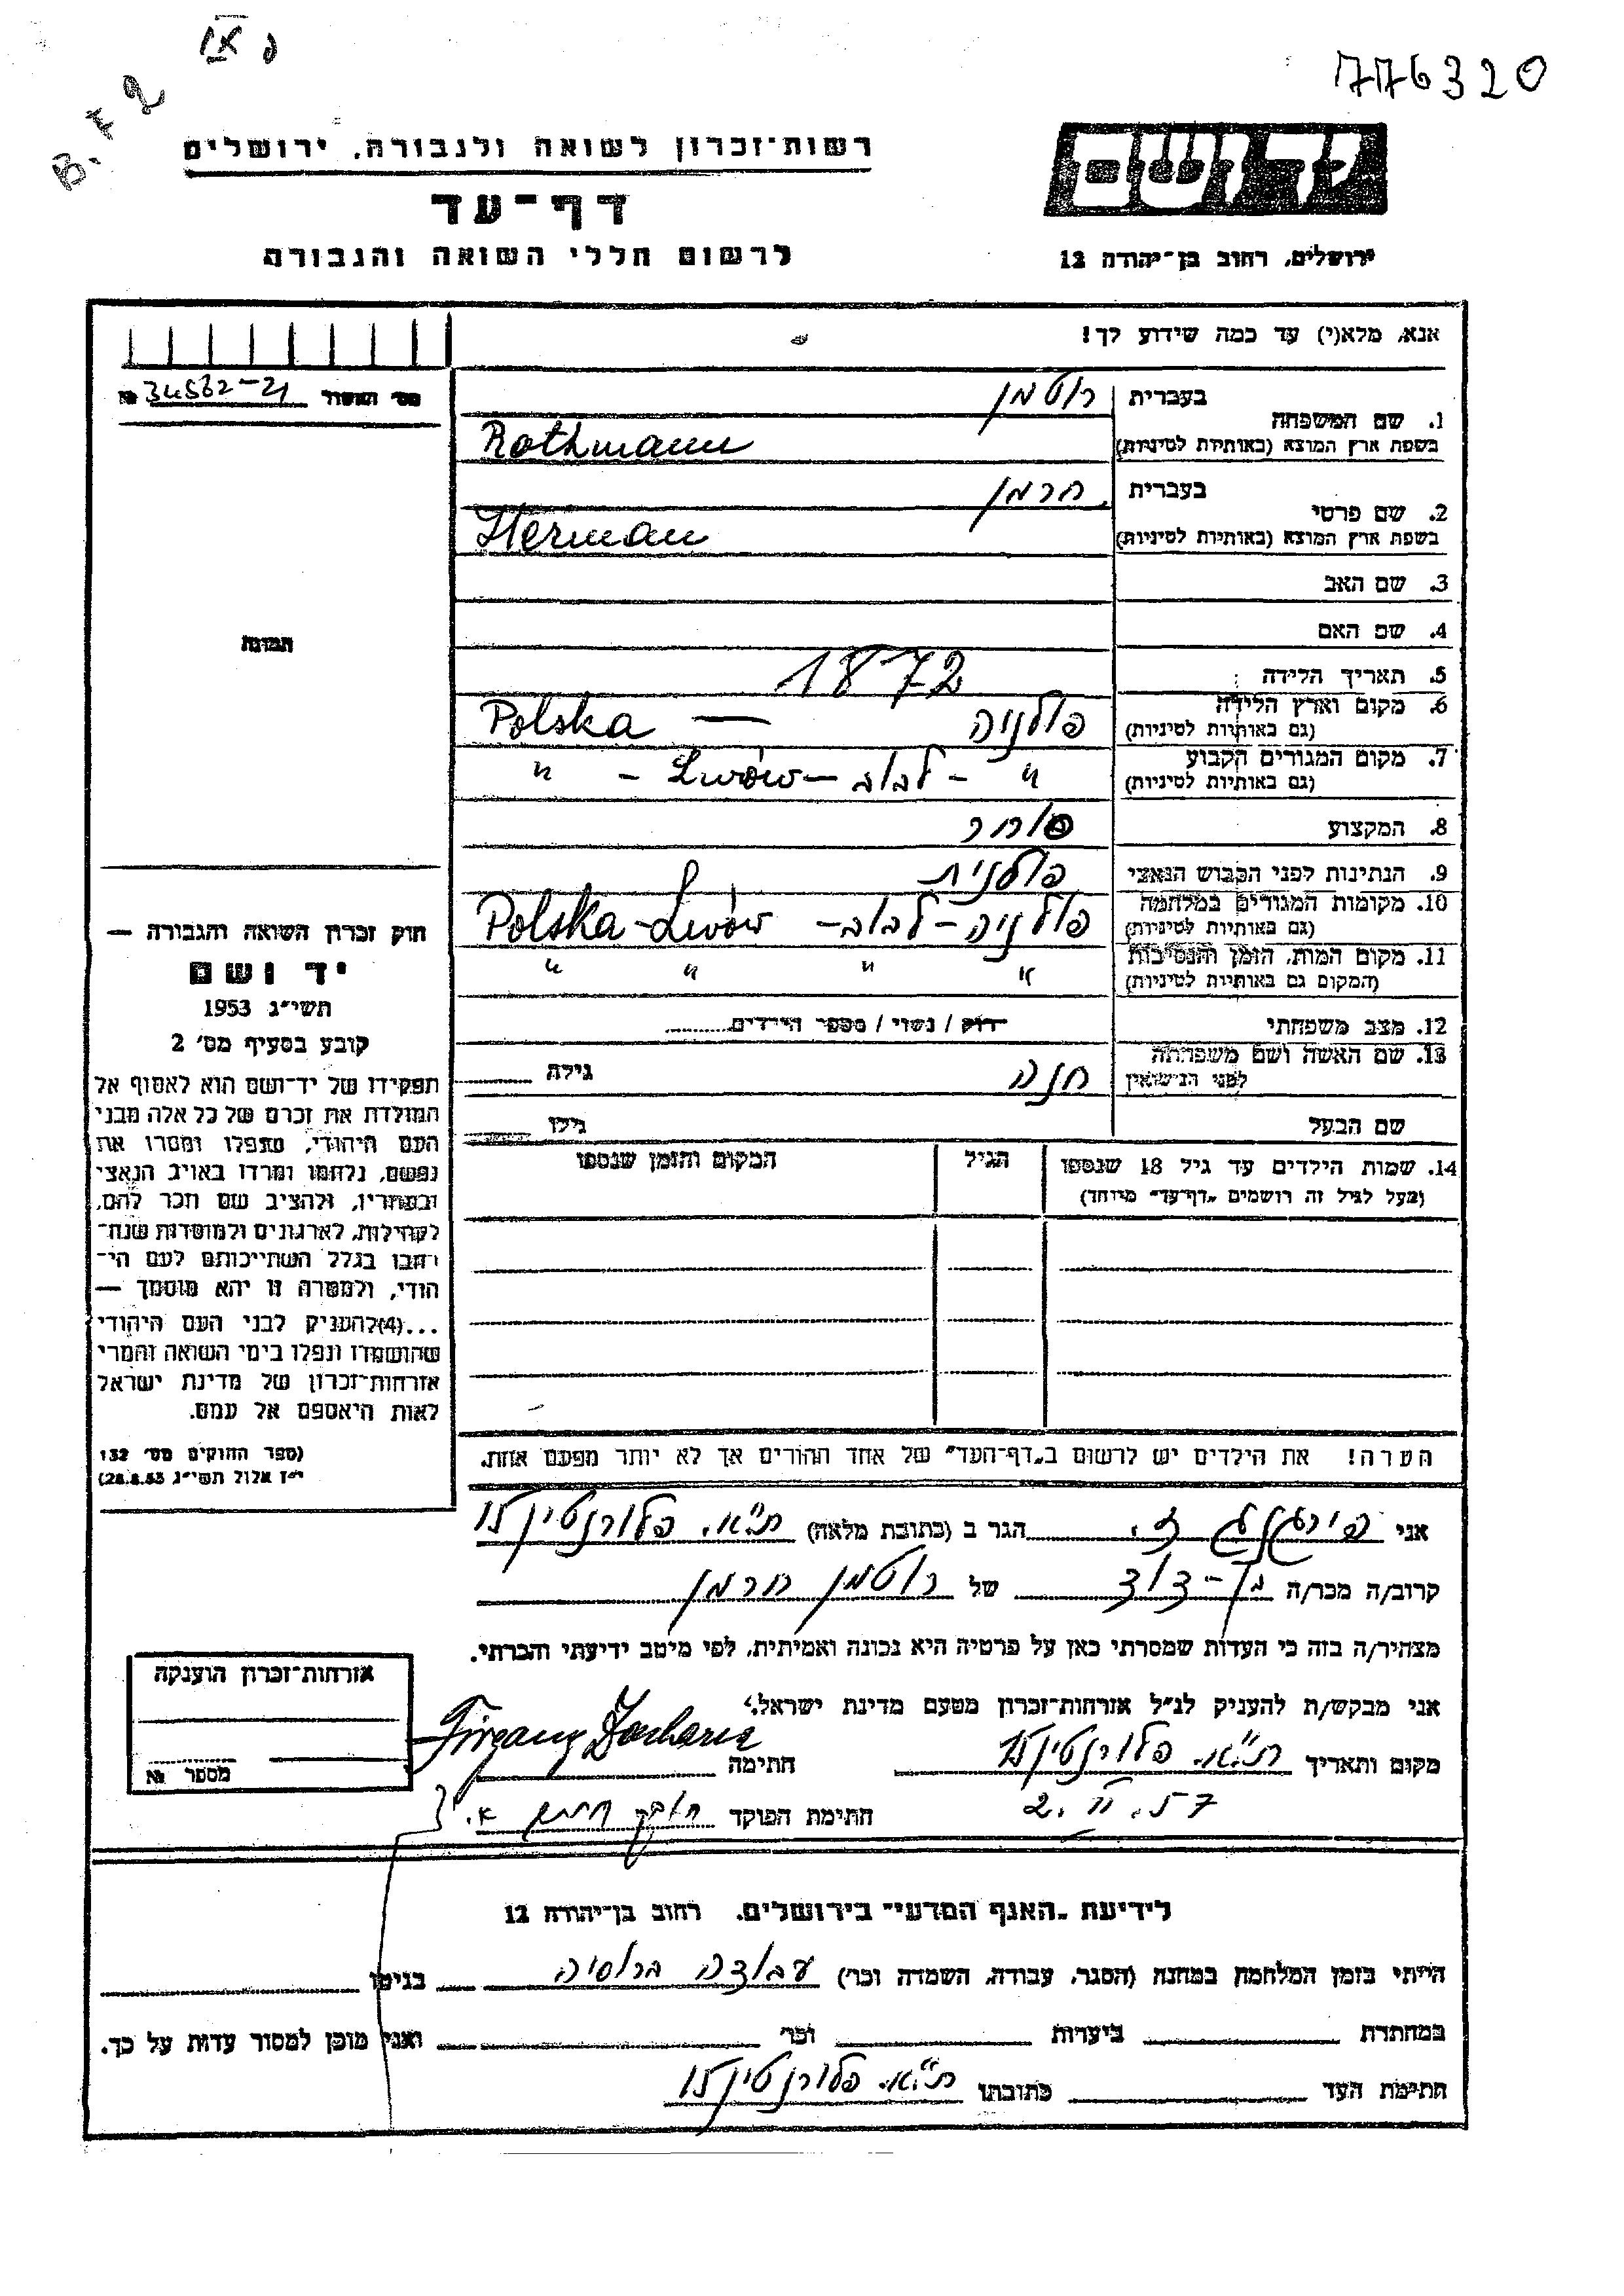 776320
B.F 2
יד ושם
רשות־זכרון לשואה ולגבורה, ירושלים
דף־עד
לרשום חללי השואה והגבורה
ירושלים, רחוב בן־יהודה 12
אנא, מלא(י) עד כמה שידוע לך!
מס׳ האשור 34562-21 №
1. שם המשפחה
בעברית רוטמן
בשפת ארץ המוצא (באותיות לטיניות) Rothmann
2. שם פרטי
בעברית הרמן
בשפת ארץ המוצא (באותיות לטיניות) Herman
3. שם האב
4. שם האם
תמונה
5. תאריך הלידה: 1872
6. מקום וארץ הלידה פולניה — Polska
(גם באותיות לטיניות)
7. מקום המגורים הקבוע " - לבוב - Lwów - "
(גם באותיות לטיניות)
8. המקצוע סוחר
9. הנתינות לפני הכבוש הנאצי פולנית
10. מקומות המגורים במלחמה פולניה - לבוב - Polska - Lwów
(גם באותיות לטיניות)
11. מקום המות, הזמן והנסיבות " " " "
(המקום גם באותיות לטיניות)
12. מצב משפחתי רווק / נשוי / מספר הילדים
13. שם האשה ושם משפחתה חנה גילה
לפני הנישואין
שם הבעל גילו
14. שמות הילדים עד גיל 18 שנספו הגיל המקום והזמן שנספו
(מעל לגיל זה רושמים „דף־עד״ מיוחד)
חוק זכרון השואה והגבורה —
יד ושם
תשי״ג 1953
קובע בסעיף מס׳ 2
תפקידו של יד־ושם הוא לאסוף אל
המולדת את זכרם של כל אלה מבני
העם היהודי, שנפלו ומסרו את
נפשם, נלחמו ומרדו באויב הנאצי
ובעוזריו, ולהציב שם וזכר להם,
לקהילות, לארגונים ולמוסדות שנח־
רבו בגלל השתייכותם לעם הי־
הודי, ולמטרה זו יהא מוסמך —
...(4) להעניק לבני העם היהודי
שהושמדו ונפלו בימי השואה והמרי
אזרחות־זכרון של מדינת ישראל
לאות היאספם אל עמם.
(ספר החוקים מס׳ 132
י״ז אלול תשי״ג 28.8.53)
הערה! את הילדים יש לרשום ב„דף־העד״ של אחד ההורים אך לא יותר מפעם אחת.
אני ז. הגר ב (כתובת מלאה) ת״א. פלורנטין 15
קרוב/ה מכר/ה בן-דוד של רוטמן הרמן
מצהיר/ה בזה כי העדות שמסרתי כאן על פרטיה היא נכונה ואמיתית, לפי מיטב ידיעתי והכרתי.
אני מבקש/ת להעניק לנ״ל אזרחות־זכרון מטעם מדינת ישראל.
מקום ותאריך ת״א. פלורנטין 15 חתימה
2.II.57 חתימת הפוקד
אזרחות־זכרון הוענקה
מספר №
לידיעת „האגף המדעי״ בירושלים, רחוב בן־יהודה 12
הייתי בזמן המלחמה במחנה (הסגר, עבודה, השמדה וכו׳) עבודה ברוסיה בגיטו
במחתרת ביערות וכו׳ ואני מוכן למסור עדות על כך.
חתימת העד כתובתו ת״א. פלורנטין 15